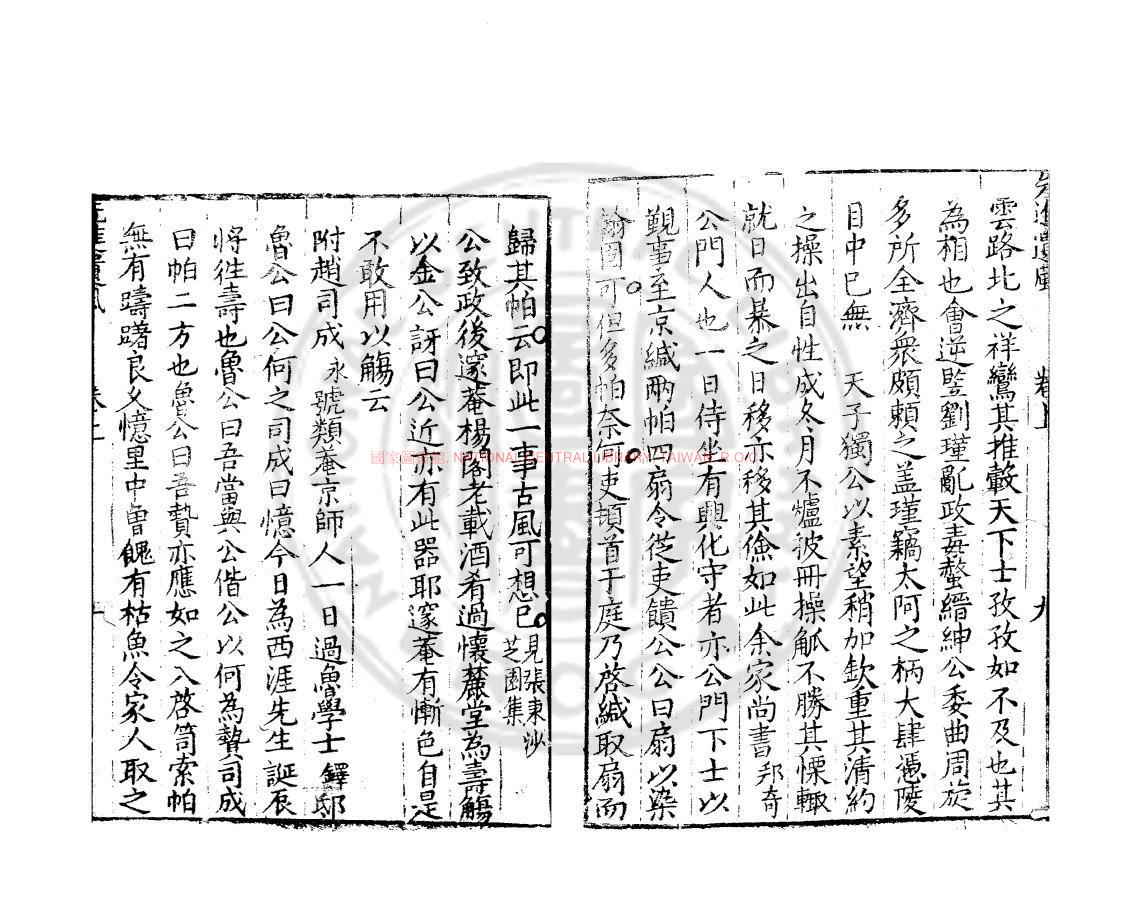 先進遺風 卷上 九
雲路北之祥鸞其推轂天下士孜孜如不及也其
為相也會逆竪劉瑾亂政毒螫縉紳公委曲周旋
多所全濟衆頗賴之盖瑾竊太阿之柄大肆慿陵
目中已無 天子獨公以素望稍加欽重其清約
之操出自性成冬月不爐披冊操觚不勝其慄輙
就日而暴之日移亦移其儉如此余家尚書邦奇
公門人也一日侍坐有興化守者亦公門下士以
覲事至京緘兩帕四扇令從吏饋公公曰扇以染
翰固可但多帕奈何吏頓首于庭乃啓緘取扇而
歸其帕云即此一事古風可想已見張東沙
芝園集
公致政後邃菴楊閣老載酒肴過懷麓堂為壽觴
以金公訝曰公近亦有此器耶邃菴有慚色自是
不敢用以觴云
附趙司成永號類菴京師人一日過魯學士鐸邸
魯公曰公何之司成曰憶今日為西涯先生誕辰
將徃壽也魯公曰吾當與公偕公以何為贄司成
曰帕二方也魯公曰吾贄亦應如之入啓笥索帕
無有躊躇良乆憶里中曾餽有枯魚令家人取之
國家圖書館, NATIONAL CENTRAL LIBRARY, TAIWAN, R.O.C.